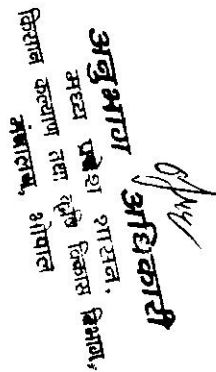 अनुभाग अधिकारी
मध्य प्रदेश शासन,
किसान कल्याण तथा कृषि विकास विभाग,
मंत्रालय, भोपाल